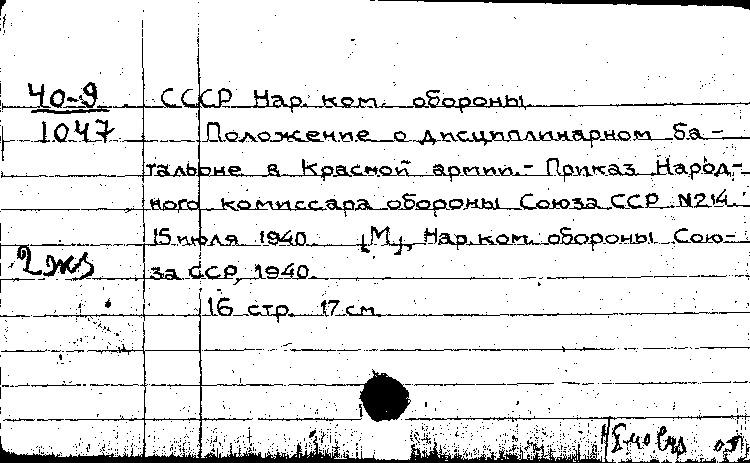 40-9
1047
СССР Нар. ком. обороны
Положение о дисциплинарном ба-
тальоне в Красной армии. - Приказ Народ-
ного комиссара обороны Союза ССР №214
15 июля 1940. [М], Нар. ком. обороны Сою-
за ССР, 1940.
2 экз
16 стр. 17 см.